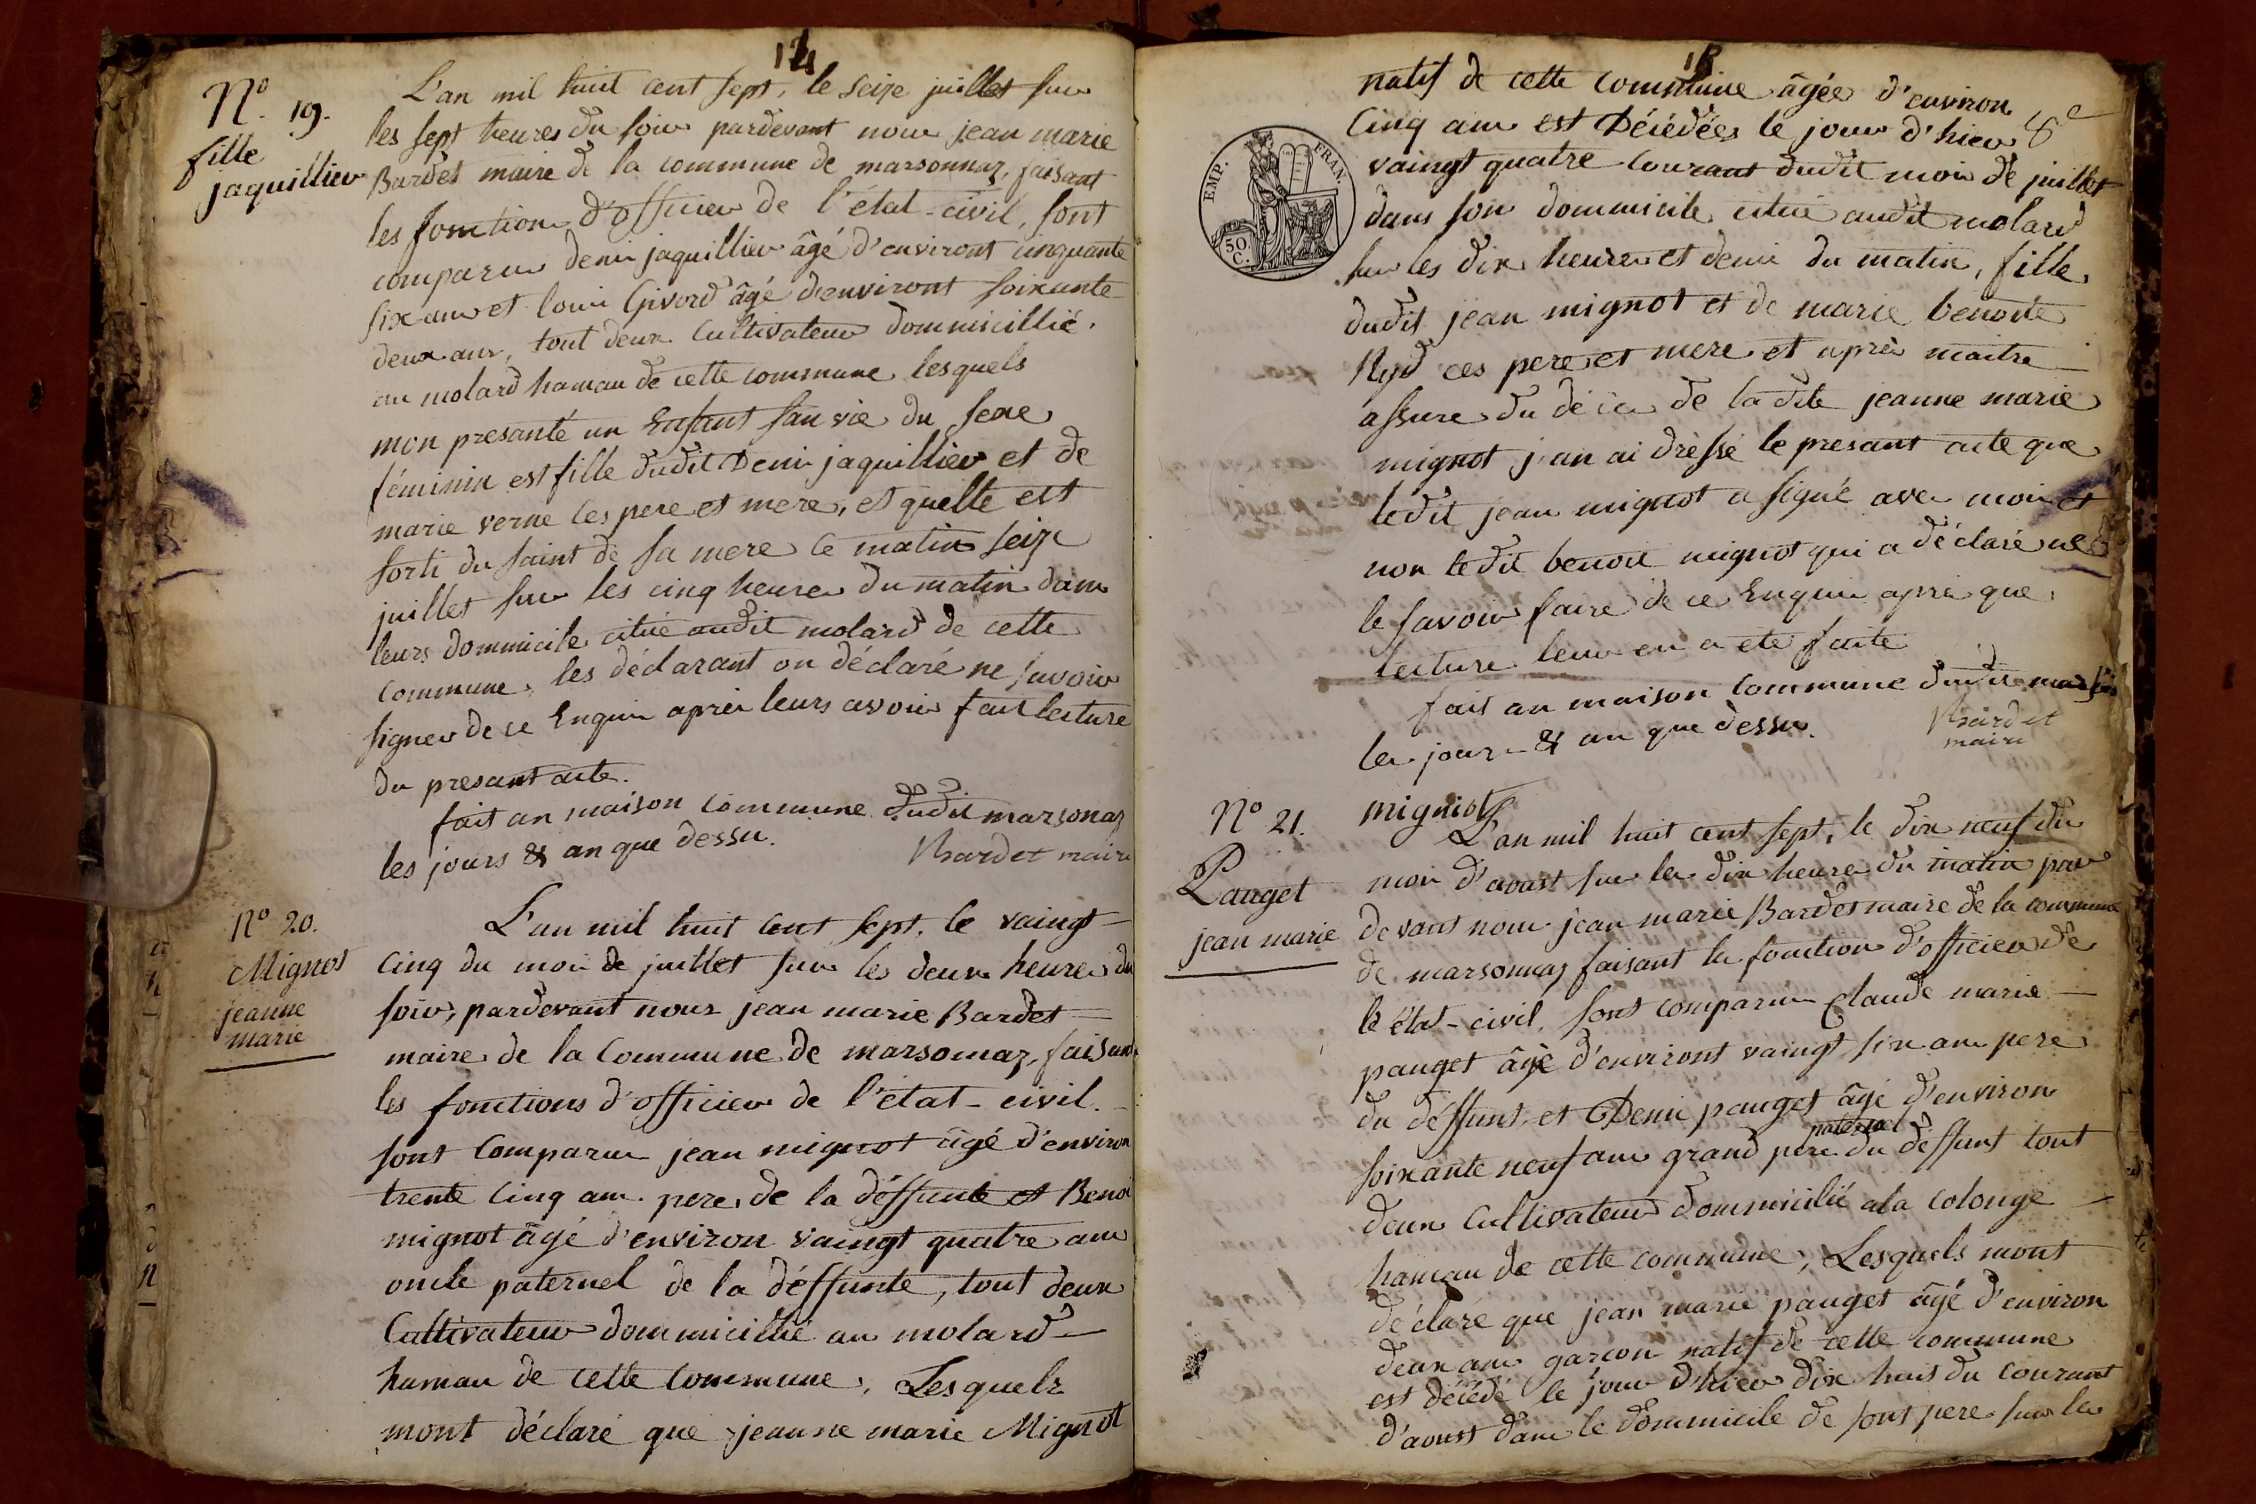 14
N.º 19.
fille
jaquillier
L'an mil huit cent sept, le seize juillet sur
les sept heures du soir pardevant nous jean marie
Bardet maire de la commune de marsonnaz, faisant
les fonctions d'officier de l'état-civil, sont
comparus denis jaquillier âgé d'environt cinquante
six ans et louis Givord âgé d'environt soixante
deux ans, tout deux Cultivateurs dommicillié.
au molard hamau de cette commune lesquels
mon presanté un Enfant san vie du sexe
féminin est fille dudit Denis jaquillier et de
marie verne ces pere et mere, et quelle est
sorti du saint de sa mere ce matin seize
juillet sur les cinq heures du matin dans
leurs dommicile citué audit molard de cette
commune, les déclarant on déclaré ne savoir
signer de ce Enquis après leurs avoir fait lecture
du presant acte.
fait an maison commune dudit marsonaz
les jours & an que dessu.
Bardet maire
Nº 20.
Mignot
jeanne
marie
L'an mil huit cent sept, le vaingt
cinq du mois de juillet sur les deux heures du
soir, pardevant nous jean marie Bardet
maire de la Commune de marsonnaz, faisant
les fonctions d'officier de l'état-civil.
sont Comparus jean mignot âgé d'environ
trente cinq ans. pere de la déffunte et Benoi
mignot âgé d'environ vaingt quatre ans
oncle paternel de la déffunte, tout deux
Cultivateurs dommicillié au molard
hamau de cette Commune, Lesquels
mont déclaré que jeanne marie Mignot
15
EMP. FRAN.
50.
C.
8e
natif de cette commune âgée d'environ
Cinq ans est Décédée le jour d'hier
vaingt quatre Courant dudit mois de juillet
dans son dommicile citué audit molard
sur les dix heures et demi du matin, fille
dudit jean mignot et de marie benoite
Nyd ces pere et mere et après maitre
assure du décès de ladite jeanne marie
mignot j'an ai dréssé le presant acte que
ledit jean mignot a signé avec moi et
non ledit benoit mignot qui a déclaré ne
le savoir faire de ce Enquis après que
lecture leur en a ete faite
fait an maison commune dudit
les jours & an que dessu.
Bardet
maire
migniot
Nº 21.
Pauget
jean marie
L'an mil huit cent sept, le dix neuf du
mois d'aoust sur les dix heures du matin par
devant nous jean marie Bardet maire de la commune
de marsonnaz faisant les fonction d'officier de
le état-civil, sont comparus Claude marie
pauget âgé d'environt vaingt six ans pere
du déffunt, et Denis pauget âgé d'environ
soixante neuf ans grand pere paternel du déffunt tout
deux Cultivateurs dommicilié a la Colonge
hamau de cette commune, Lesquels mont
déclaré que jean marie pauget âgé d'environ
deux ans garçon natif de cette commune
est décédé le jour d'hier dix huit du courant
d'aoust dans le dommicile de sont pere sur les